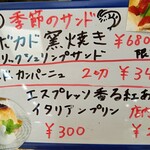 季節のサンド
ボカド 窯焼き ¥680
リックシュリンプサンド 限
ド、カンパーニュ 2切 ¥34
エスプレッソ香る紅お
イタリアンプリン
¥300 ¥2